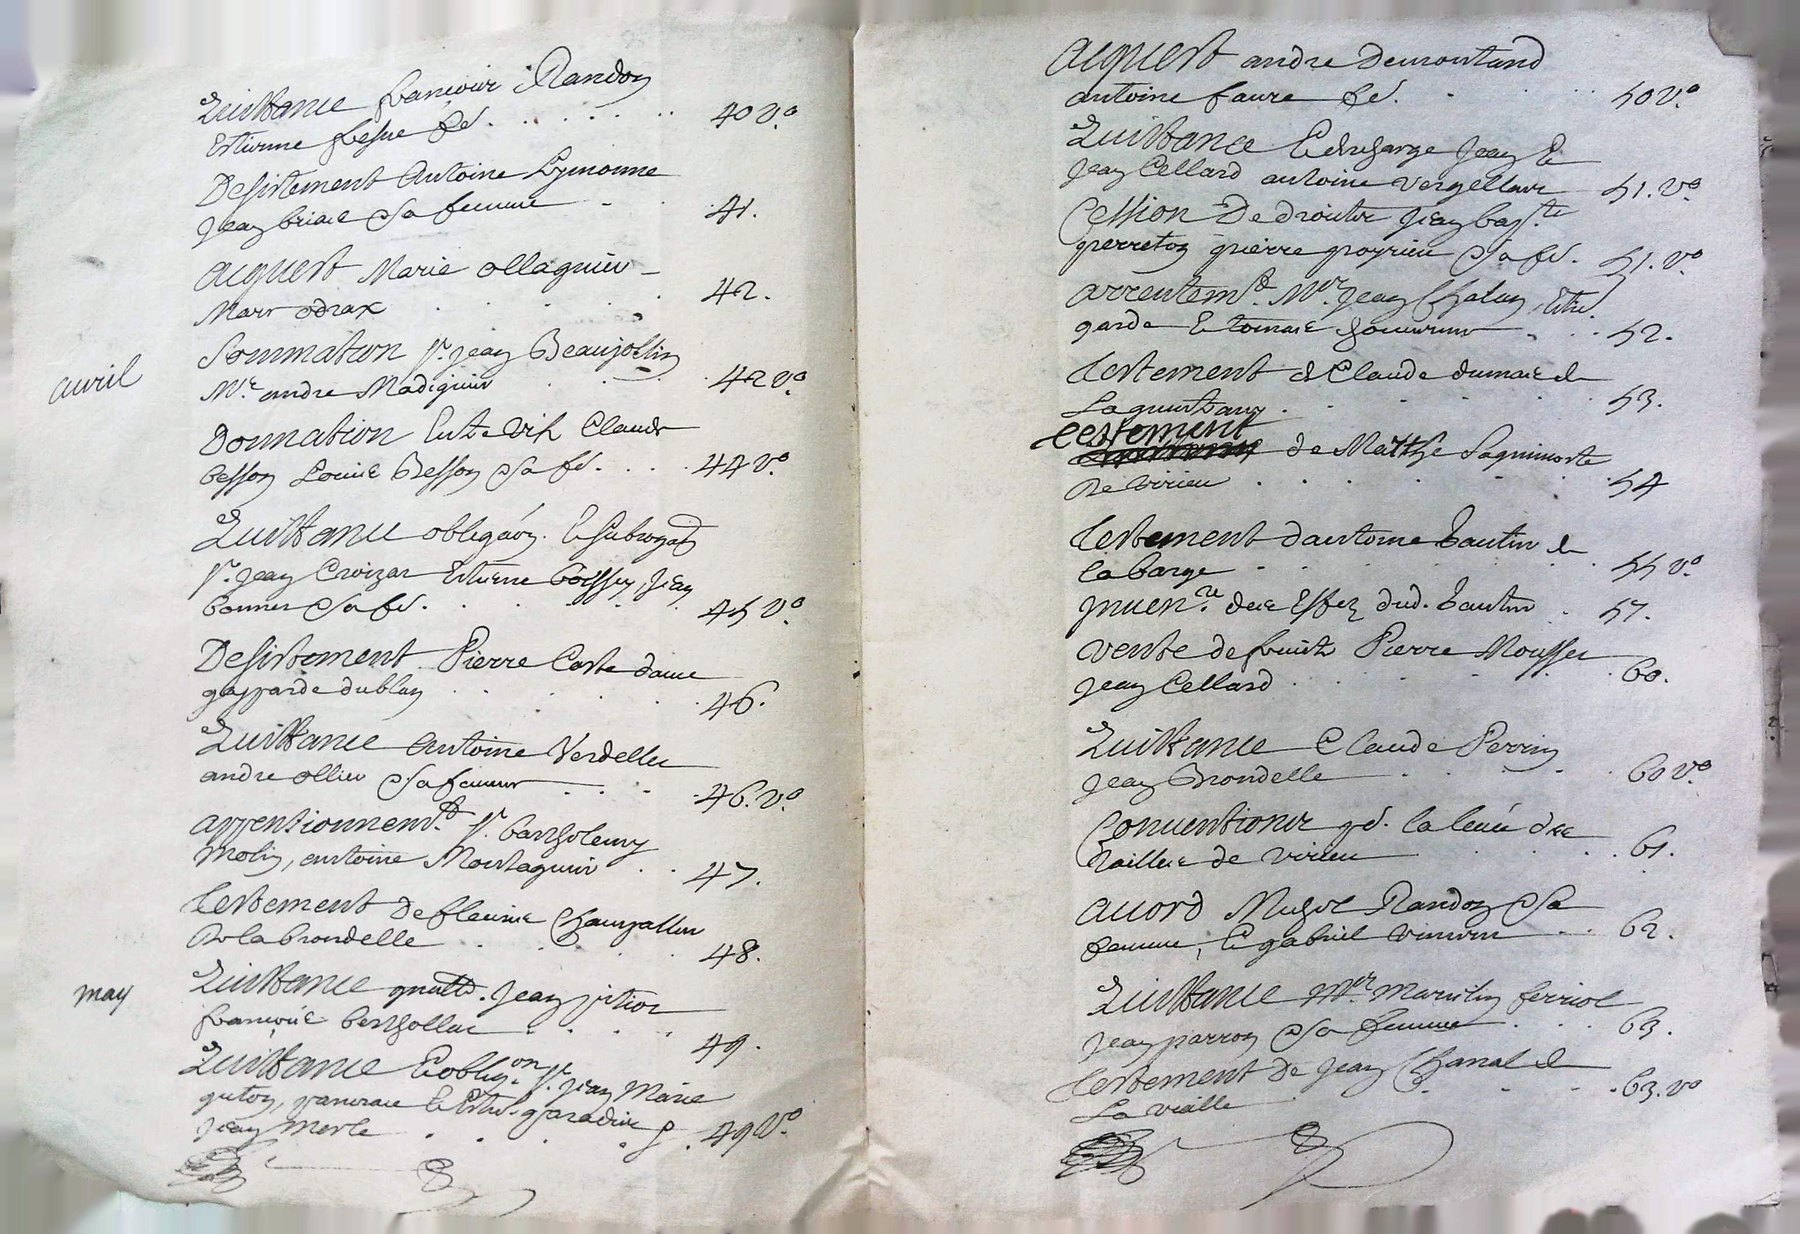 Quittance francois Randon
Estienne fesne fe. 40 v.o
Desistement Antoine Lymonne
Jean briae & sa femme 41.
Acquest Marie ollagnier
Marc odrax 42.
avril
Sommation Sr. Jean Beaujollin
Mre andre Madignier 42 v.o
Donnation Entre vifs Claude
besson Louise Besson & sa fe. 44 v.o
Quittance obligãon. & subrogat
Sr. Jean Croizar Estienne boissy, Jean
bonner & sa fe. 45 v.o
Desistement Pierre Coste dame
gasparde dublay 46.
Quittance Antoine Verdellec
andre ollier & sa femme 46. v.o
appensionnem.t Sr. barthelemy
Molin, antoine Montagnier 47.
Testement de fleurie Champallier
de la brondelle 48.
may
Quittance quitt. Jean pitior
francois berthollac 49.
Quittance & oblig.on Sr. Jean Marie
guiton, pancrace & Estie. paradis
Jean Merle 49 v.o
Acquest andre Demontand
antoine faure fe. 50 v.o
Quittance & descharge Jean &
Jean Cellard antoine vergellaux 51. v.o
Cession De droits Jean bap.te
perreton pierre poyrieu & sa fe. 51. v.o
Arrentem.t Mre Jean Chalan,
garde & tomase 52.
Testement de Claude dumas de
53.
testement
de Matthe Laguimorte
De virieu 54
Testement dantoine bautin de
la barge 55 v.o
Inven.re des Effez dud. bautin 57.
Vente de fruits Pierre Mousser
Jean Cellard 60.
Quittance Claude Perrin
Jean Brondelle 60 v.o
Conventions pd. la levée des
tailles de virieu 61.
Accord Michel Randon & sa
femme, & gabriel 62.
Quittance Mre Marcelin ferriol
Jean parron & sa femme 63.
Testement de Jean Chanal de
La vialle 63. v.o